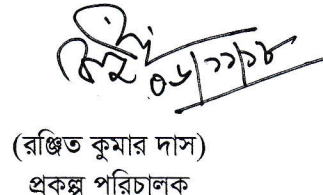 ০৬/১১/১৮
(রঞ্জিত কুমার দাস)
প্রকল্প পরিচালক